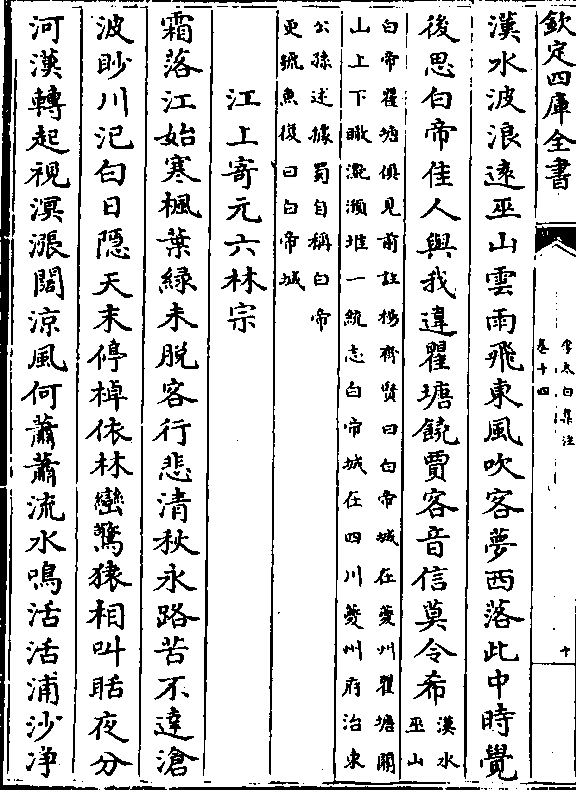 欽定四庫全書
李太白集注
卷十四
十
漢水波浪遠巫山雲雨飛東風吹客夢西落此中時覺
後思白帝佳人與我違瞿塘饒賈客音信莫令希漢水
巫山
白帝瞿塘俱見前註楊齊賢曰白帝城在夔州瞿塘關
山上下瞰灧澦堆一統志白帝城在四川夔州府治東
公孫述據蜀自稱白帝
更號魚復曰白帝城
江上寄元六林宗
霜落江始寒楓葉緑未脱客行悲清秋永路苦不達滄
波眇川汜白日隠天末停棹依林巒驚猿相叫聒夜分
河漢轉起視溟漲闊涼風何蕭蕭流水鳴活活浦沙浄